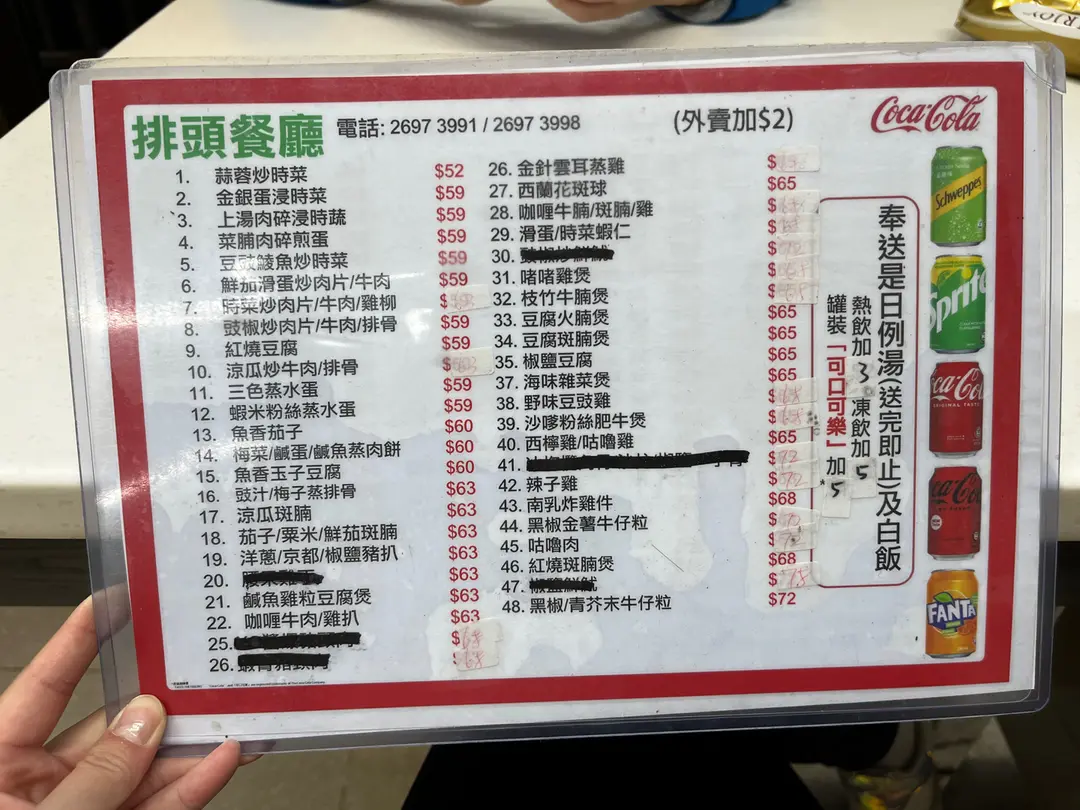 排頭餐廳 電話: 2697 3991 / 2697 3998 (外賣加$2)
Coca-Cola
1. 蒜蓉炒時菜 $52
2. 金銀蛋浸時菜 $59
3. 上湯肉碎浸時蔬 $59
4. 菜脯肉碎煎蛋 $59
5. 豆豉鯪魚炒時菜 $59
6. 鮮茄滑蛋炒肉片/牛肉 $59
7. 時菜炒肉片/牛肉/雞柳 $
8. 豉椒炒肉片/牛肉/排骨 $59
9. 紅燒豆腐 $59
10. 涼瓜炒牛肉/排骨 $
11. 三色蒸水蛋 $59
12. 蝦米粉絲蒸水蛋 $59
13. 魚香茄子 $60
14. 梅菜/鹹蛋/鹹魚蒸肉餅 $60
15. 魚香玉子豆腐 $60
16. 豉汁/梅子蒸排骨 $63
17. 涼瓜斑腩 $63
18. 茄子/粟米/鮮茄斑腩 $63
19. 洋蔥/京都/椒鹽豬扒 $63
20. $63
21. 鹹魚雞粒豆腐煲 $63
22. 咖喱牛肉/雞扒 $63
25. $68
26. $68
26. 金針雲耳蒸雞 $
27. 西蘭花斑球 $65
28. 咖喱牛腩/斑腩/雞 $
29. 滑蛋/時菜蝦仁 $
30. $
31. 啫啫雞煲 $
32. 枝竹牛腩煲 $
33. 豆腐火腩煲 $65
34. 豆腐斑腩煲 $65
35. 椒鹽豆腐 $65
37. 海味雜菜煲 $65
38. 野味豆豉雞 $68
39. 沙嗲粉絲肥牛煲 $68
40. 西檸雞/咕嚕雞 $65
41. $72
42. 辣子雞 $72
43. 南乳炸雞件 $68
44. 黑椒金薯牛仔粒 $
45. 咕嚕肉 $
46. 紅燒斑腩煲 $68
47. $78
48. 黑椒/青芥末牛仔粒 $72
奉送是日例湯(送完即止)及白飯
熱飲加3 凍飲加5
罐裝「可口可樂」加5
Schweppes
Sprite
Coca-Cola
ORIGINAL TASTE
Coca-Cola
FANTA